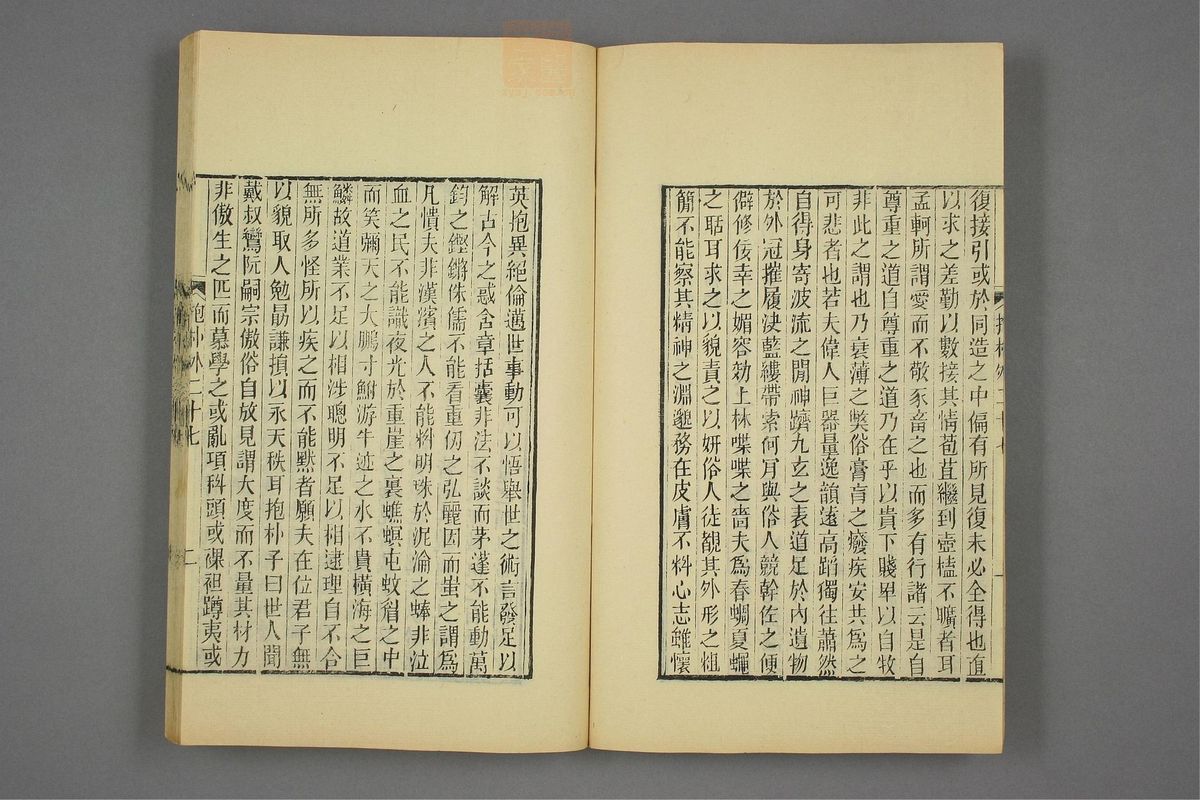 復接引或於同造之中偏有所見復未必全得也直
以求之差勤以數接其情苞苴繼到壺榼不曠者耳
孟軻所謂愛而不敬豕畜之也而多有行諸云是自
尊重之道自尊重之道乃在乎以貴下賤卑以自牧
非此之謂也乃衰薄之獘俗膏肓之癈疾安共為之
可悲者也若夫偉人巨器量逸韻遠高蹈獨往蕭然
自得身寄波流之間神躋九玄之表道足於內遺物
於外冠摧履決藍縷帶索何肎與俗人競幹佐之便
僻修佞幸之媚容効上林喋喋之嗇夫為春蜩夏蠅
之聒耳求之以貌責之以妍俗人徒覩其外形之粗
簡不能察其精神之淵邈務在皮膚不料心志雖懷
英抱異絕倫邁世事動可以悟舉世之術言發足以
解古今之惑含章括囊非法不談而茅蓬不能動萬
鈞之鏗鏘侏儒不能看重仞之弘麗因而蚩之謂為
凡憒夫非漢濱之人不能料明珠於泥淪之蜯非泣
血之民不能識夜光於重崖之裏蟭螟屯蚊眉之中
而笑彌天之大鵬寸鮒游牛迹之水不貴橫海之巨
鱗故道業不足以相涉聰明不足以相逮理自不合
無所多怪所以疾之而不能默者願夫在位君子無
以貌取人勉勗謙損以永天秩耳抱朴子曰世人聞
戴叔鸞阮嗣宗傲俗自放見謂大度而不量其材力
非傲生之匹而慕學之或亂項科頭或倮袒蹲夷或
抱朴外二十七
二